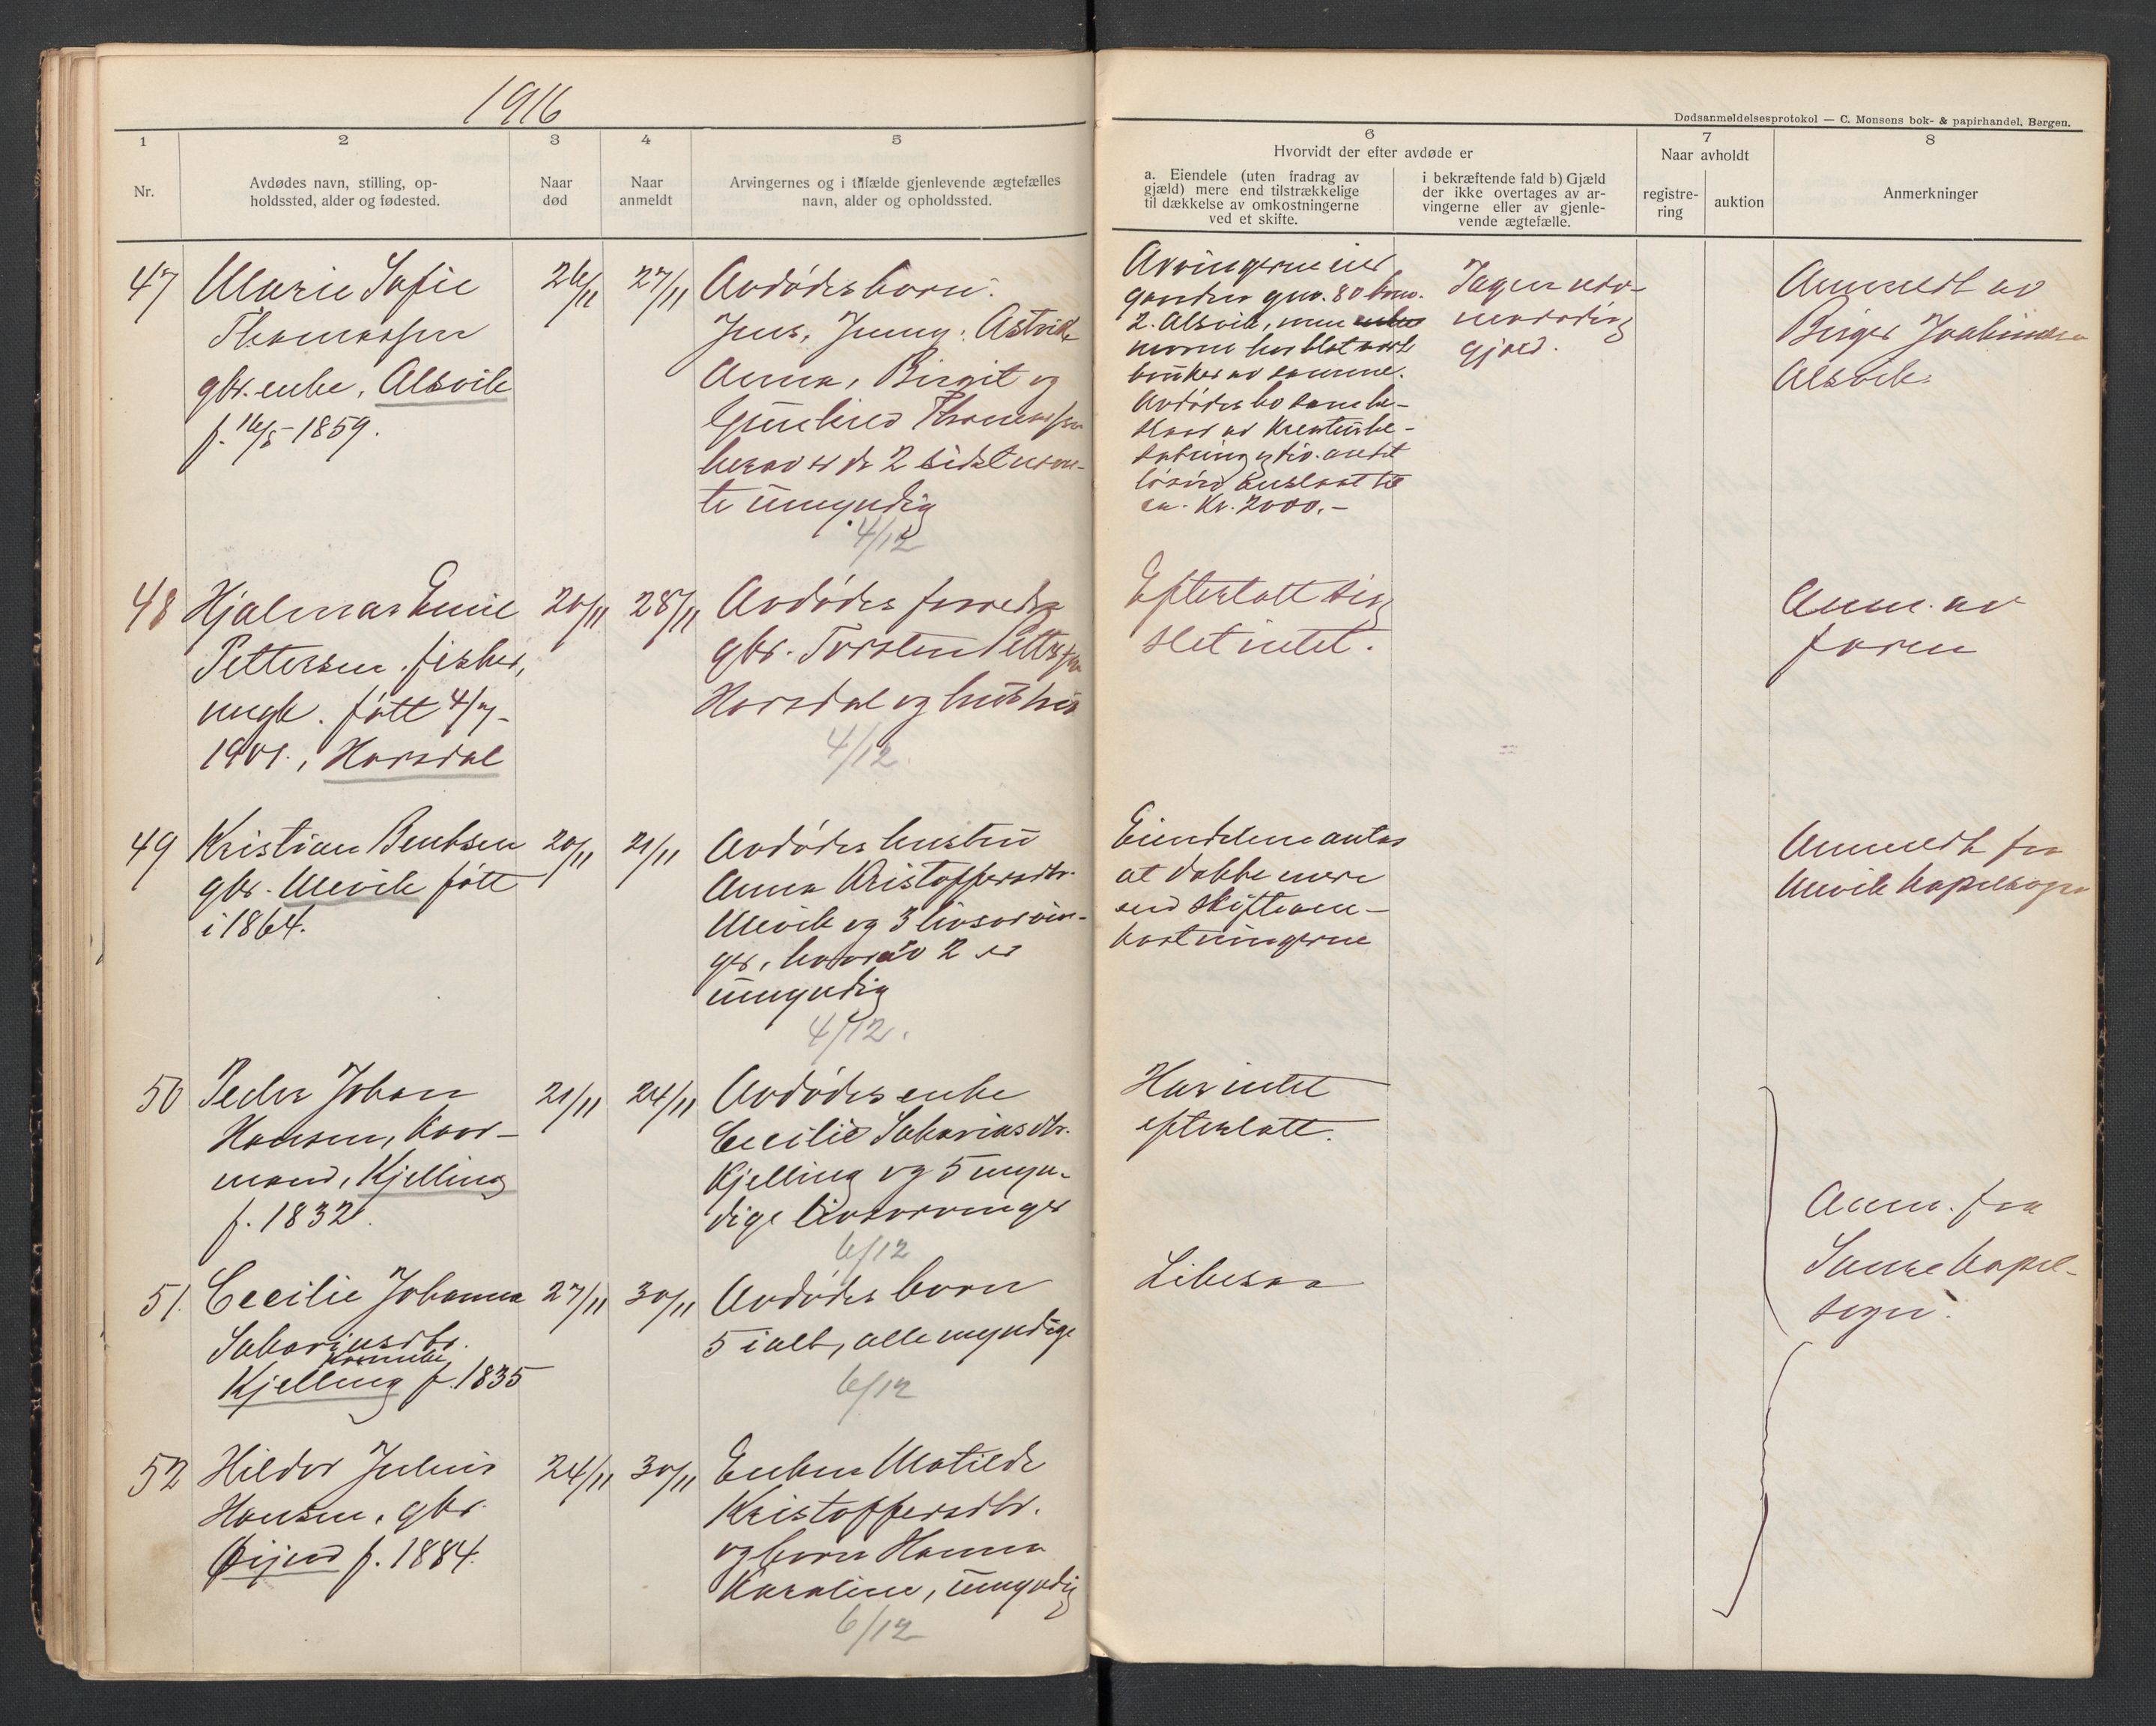 1916
Dødsanmeldelsesprotokol — C. Monsens bok- & papirhandel, Bergen.
1
2
3
4
5
6
7
8
Nr.
Avdødes navn, stilling, op-
holdssted, alder og fødested.
Naar
død
Naar
anmeldt
Arvingernes og i tilfælde gjenlevende ægtefælles
navn, alder og opholdssted.
Hvorvidt der efter avdøde er
a. Eiendele (uten fradrag av
gjæld) mere end tilstrækkelige
til dækkelse av omkostningerne
ved et skifte.
i bekræftende fald b) Gjæld
der ikke overtages av ar-
vingerne eller av gjenle-
vende ægtefælle.
Naar avholdt
registre-
ring
auktion
Anmerkninger
47
Marie Sofie
Thomassen
gbr. enke, Alsvik
f. 16/5-1859.
26/11
27/11
Avdødes børn:
Jens, Jenny, Astrid,
Anna, Birgit og
Gunhild Thomassen
herav er de 2 sidstnævn-
te umyndig
4/12
Arvingerne eier
gaarden gno. 80 brno.
2. Alsvik, men
bruker av samme.
Avdødes bo kan be-
staa av Kreaturbe-
sætning og div. andet
løsøre anslaat til
ca. Kr. 2000.-
Ingen uved-
gjæld.
Anmeldt av
Birger Joakimsen
Alsvik.
48
Hjalmar Emil
Pettersen. fisker,
ungk. født 4/7-
1901., Horsdal
20/11
28/11
Avdødes forældre
gbr. Torsten Pettersen
Horsdal og hustru
4/12
Efterlatt sig
slet intet.
Anm. av
faren
49
Kristian Bentsen
gbr. Mevik født
i 1864.
20/11
21/11
Avdødes hustru
Anna Kristoffersdtr.
Mevik og 3 livsarvin-
ger, hvorav 2 er
umyndig
4/12.
Eiendelene antas
at dække mere
end skifteom-
kostningerne
Anmeldt fra
Mevik kapelsogn
50
Peder Johan
Hansen, kaar-
mand, Kjelling
f. 1832.
21/11
24/11
Avdødes enke
Cecilie Sakariasdtr.
Kjelling og 5 myn-
dige livsarvinger
6/12
Har intet
efterlatt.
Anm. fra
kapel-
sogn.
51.
Cecilie Johanna
Sakariasdtr.
kaarenke
Kjelling f. 1835
27/11
30/11
Avdødes børn
5 ialt, alle myndige
6/12
Likesaa
52
Hildor Julius
Hansen, gbr.
f. 1884.
24/11
30/11
Enken Matilde
Kristoffersdtr.
og barn Hanna
Karoline, umyndig
6/12